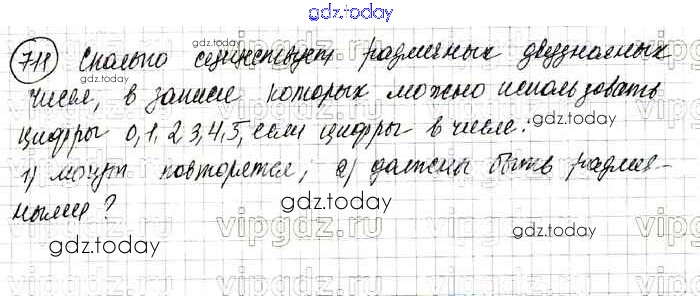 gdz.today
711 Сколько существует различных двузначных
gdz.today
чисел, в записи которых можно использовать
цифры 0, 1, 2 3, 4, 5, если цифры в числе:
gdz.today
1) могут повторятся, 2) должны быть различ-
ными?
gdz.today
gdz.today
gdz.today
vipgdz.ru